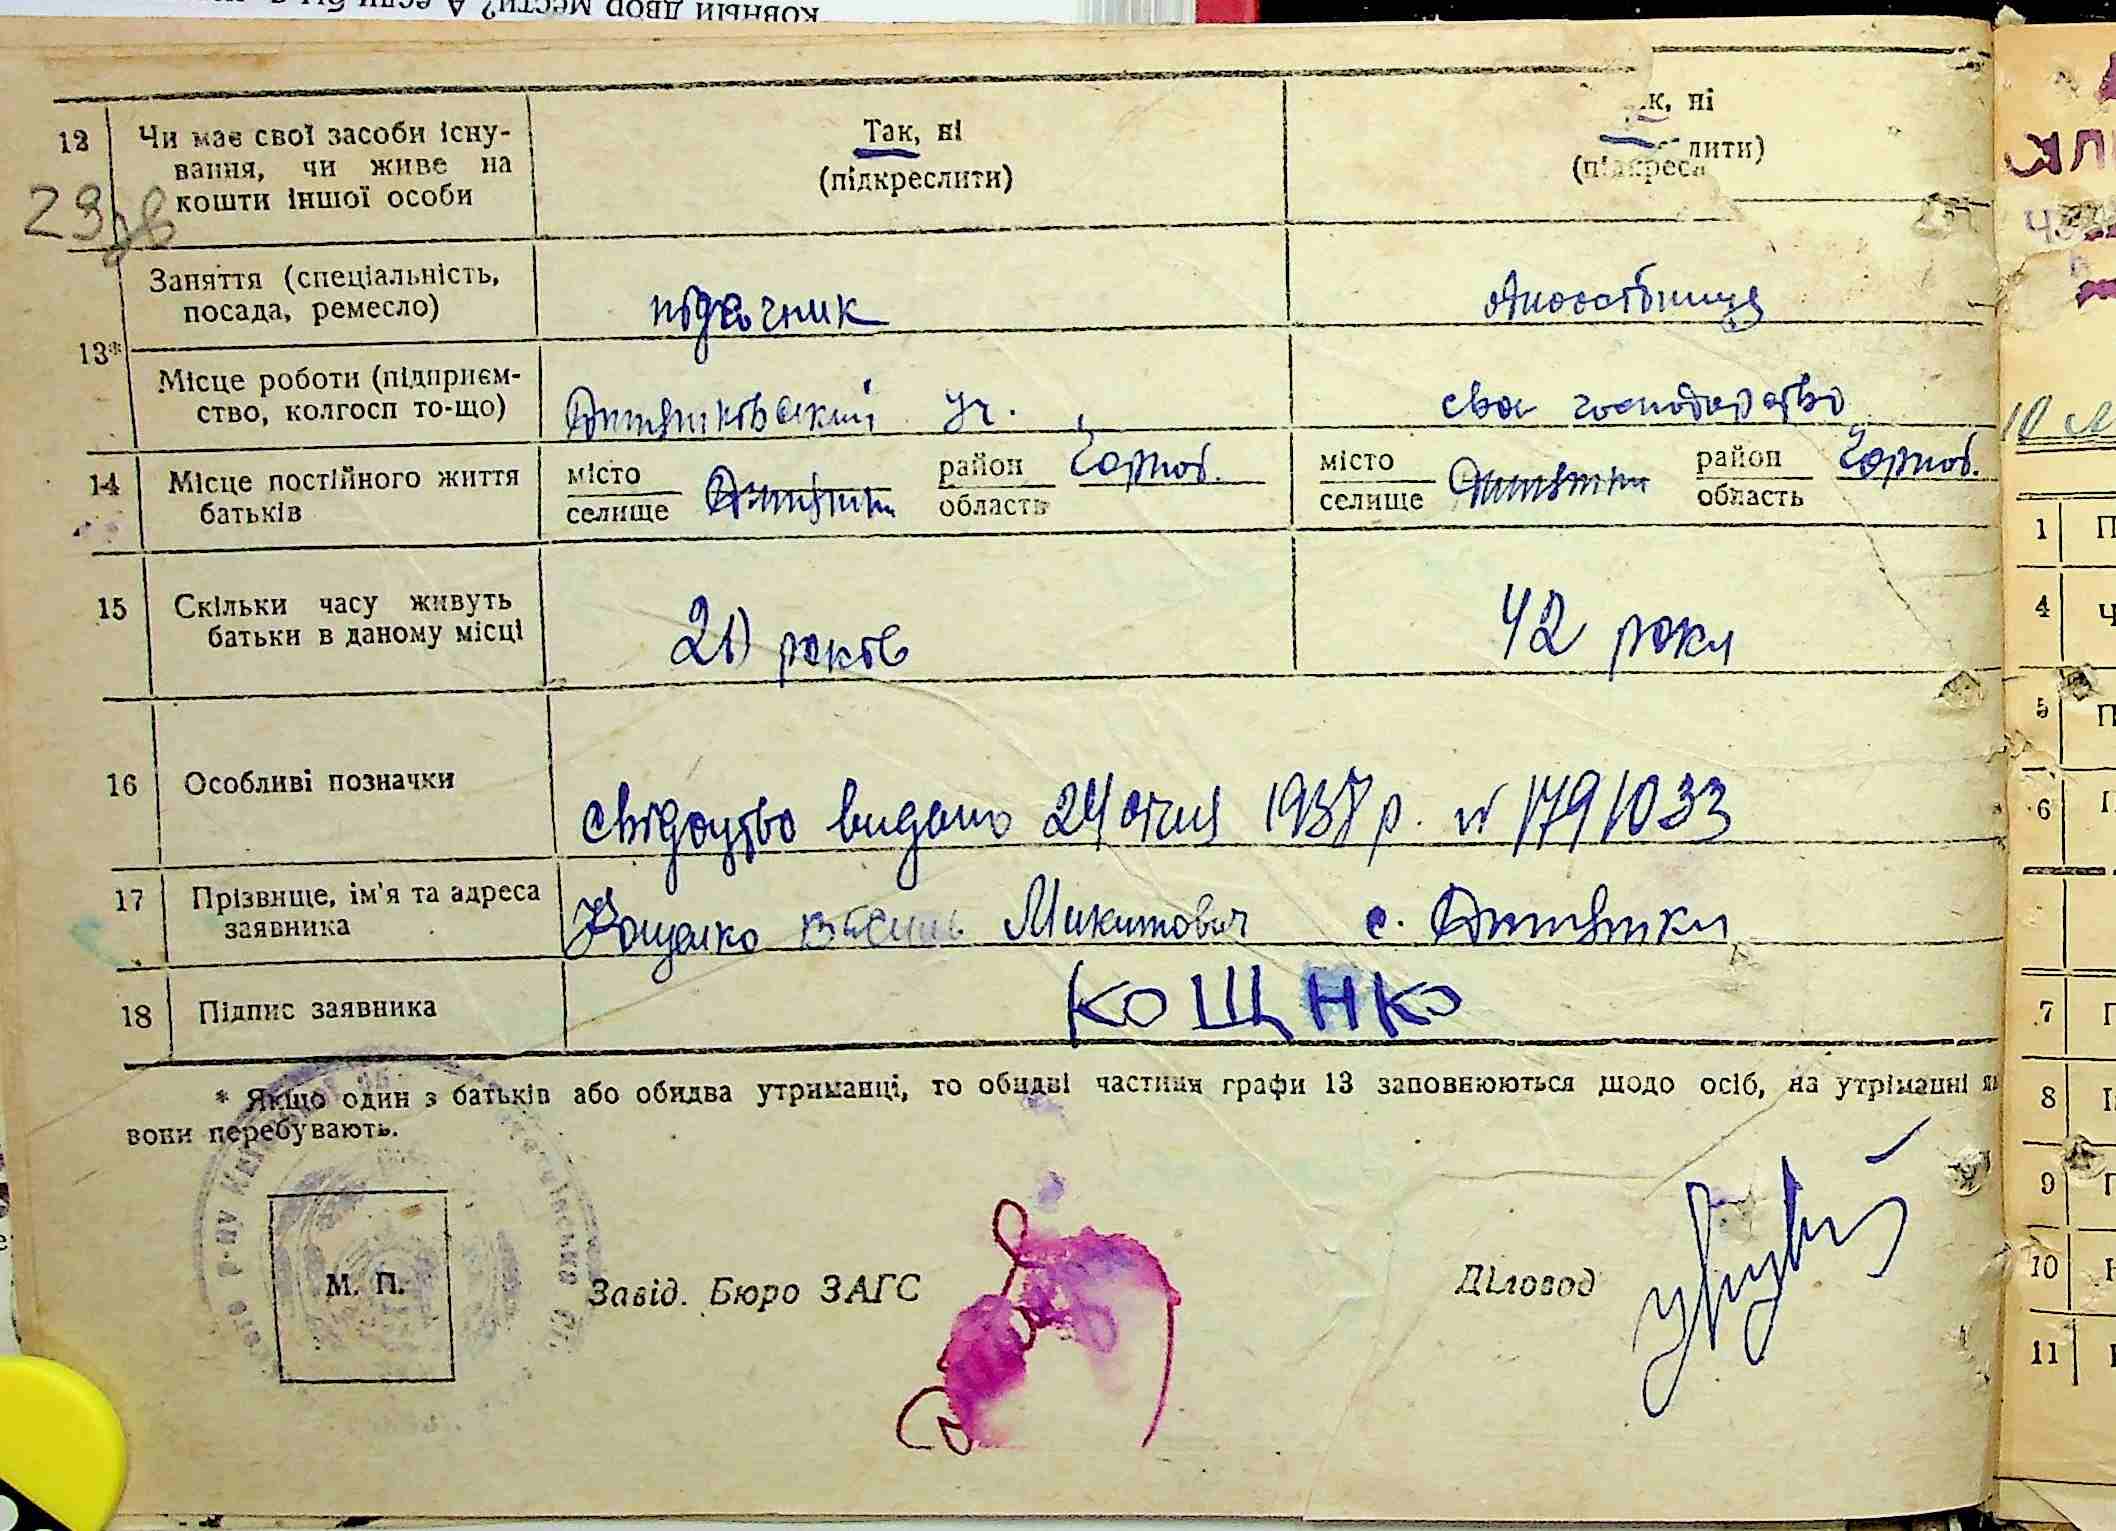 ковный двор мести? А если бы
12 Чи має свої засоби існу-
вання, чи живе на
кошти іншої особи
Так, ні
(підкреслити)
ні
(підкресл лити)
29
13* Заняття (спеціальність,
посада, ремесло)
підсочник
одноосібниця
Місце роботи (підприєм-
ство, колгосп то-що)
Дитятківський уч.
своє господарство
14 Місце постійного життя
батьків
місто
селище Дитятки район
область Чорноб.
місто
селище Дитятки район
область Чорноб.
15 Скільки часу живуть
батьки в даному місці
20 років
42 роки
16 Особливі позначки
свідоцтво видано 24 січня 1938 р. № 1791033
17 Прізвище, ім'я та адреса
заявника
Кощенко Микитович с. Дитятки
18 Підпис заявника
КОЩНКО
* Якщо один з батьків або обидва утриманці, то обидві частини графи 13 заповнюються щодо осіб, на утріманні як
вони перебувають.
М. П.
Завід. Бюро ЗАГС
Діловод
1 П
4 Ч
5 П
6
7
8
9
10
11